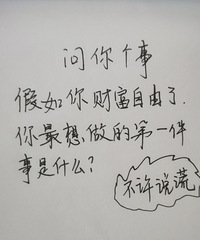 问你个事
假如你财富自由了.
你最想做的第一件
事是什么?
不许说谎